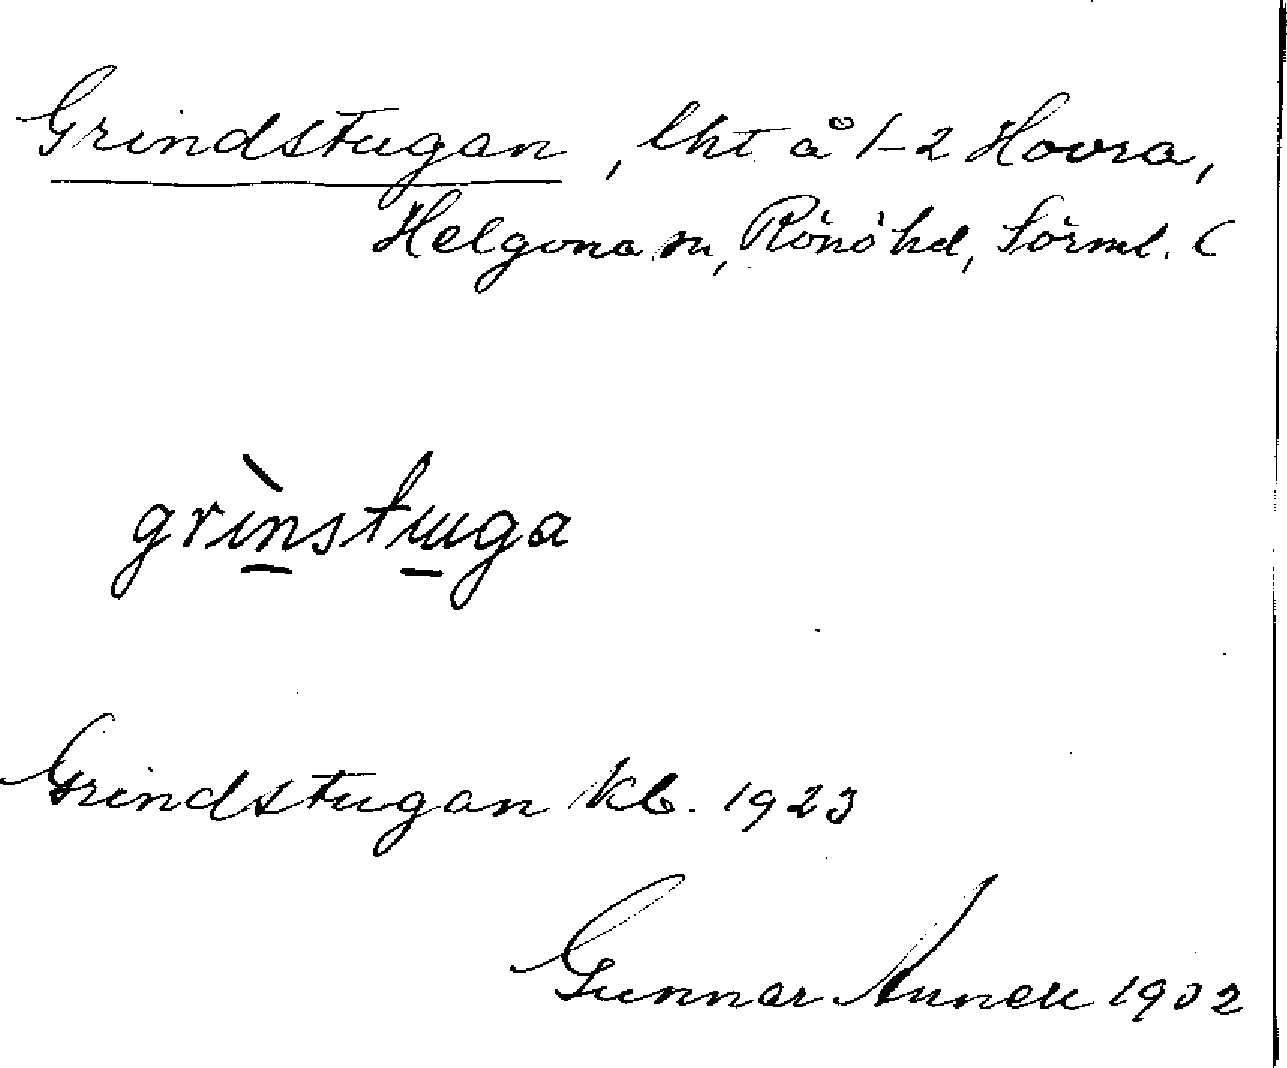 Grindstugan, lht å 1-2 Hovra,
Helgona sn, Rönö hd, Sörml. (
grìnstuga
Grindstugan kb. 1923
Gunnar 1902